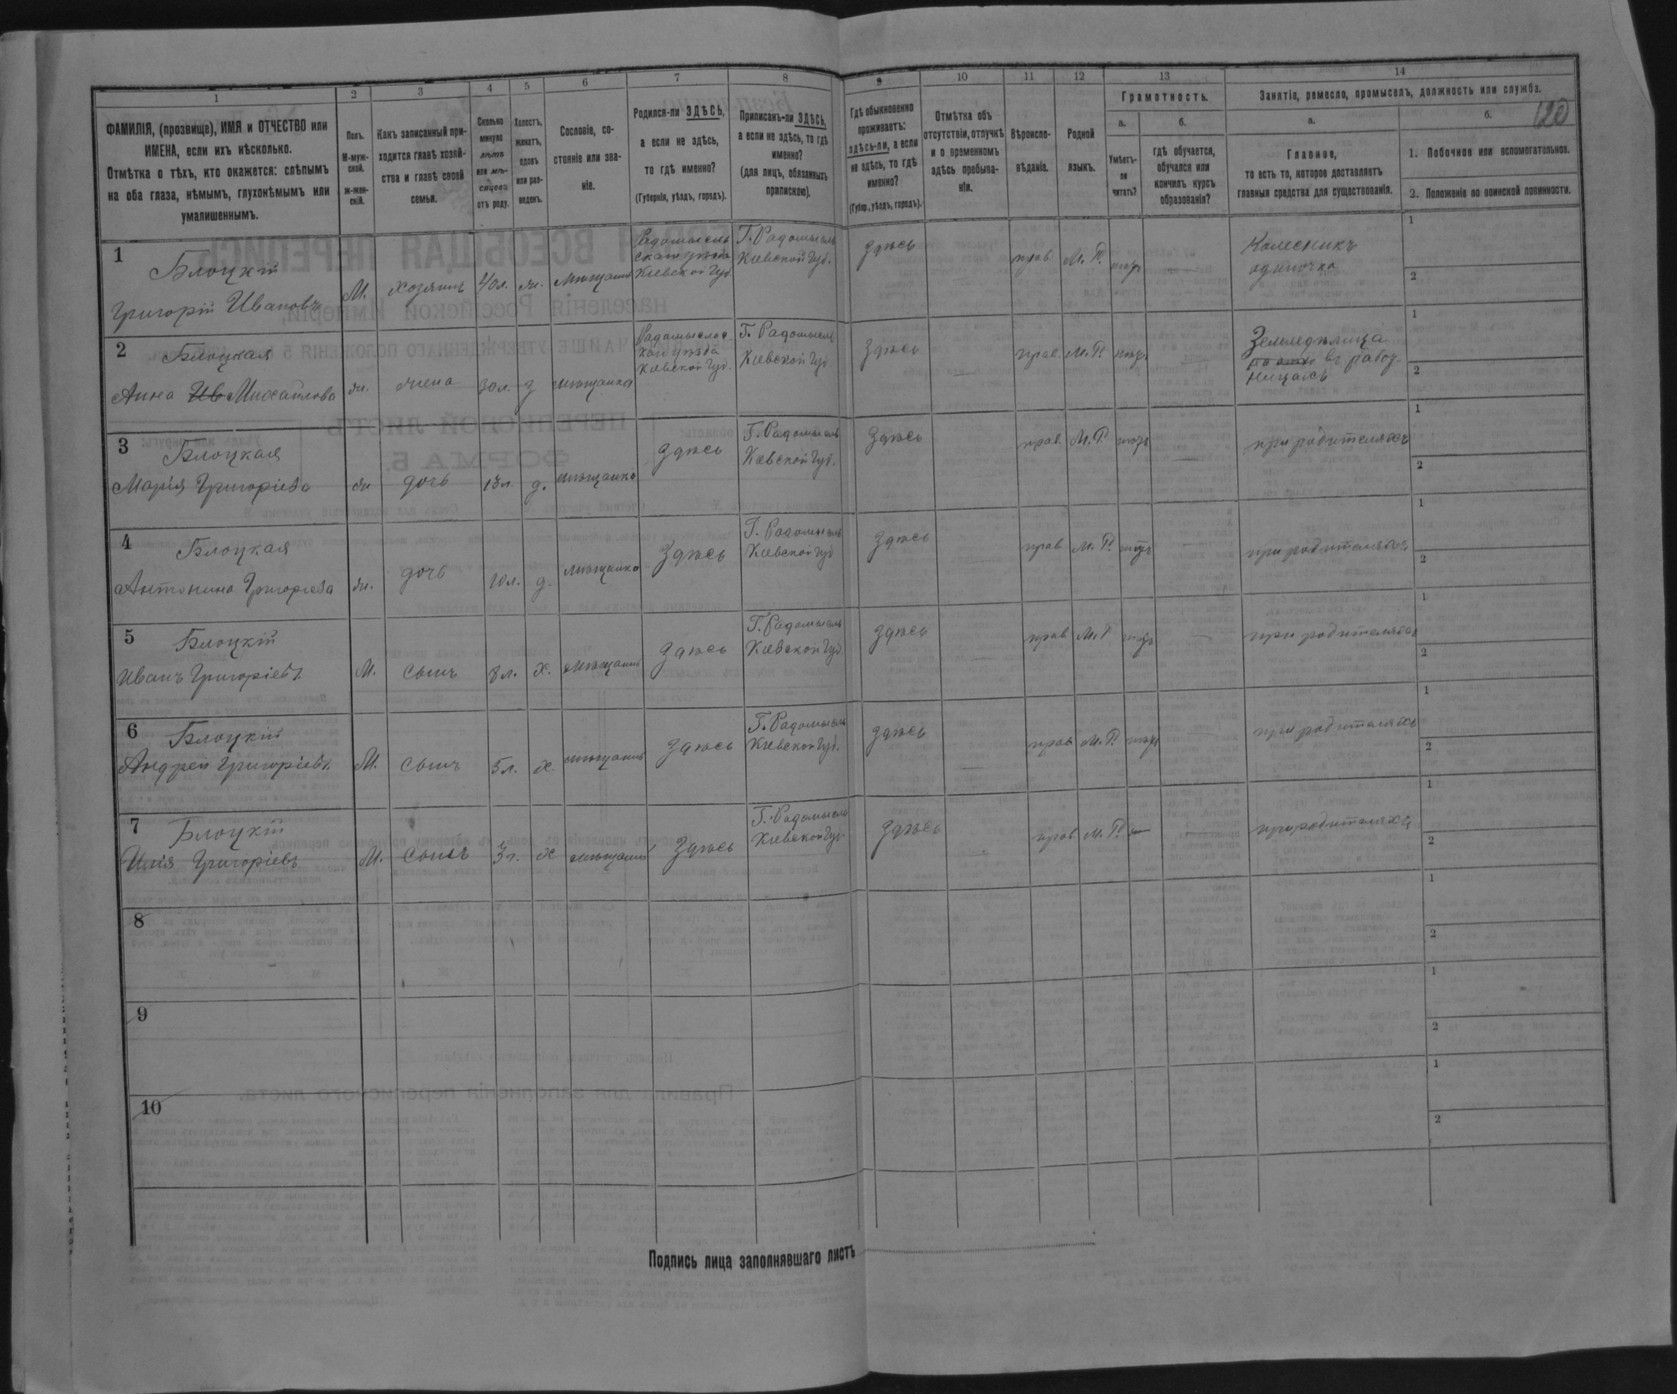 1 2 3 4 5 6 7 8 9 10 11 12 13 14
120
ФАМИЛІЯ, (прозвище), ИМЯ и ОТЧЕСТВО или
ИМЕНА, если ихъ нѣсколько.
Отмѣтка о тѣхъ, кто окажется: слѣпымъ
на оба глаза, нѣмымъ, глухонѣмымъ или
умалишеннымъ.
Полъ.
М-муж-
ской.
ж-жен-
скій.
Какъ записанный при-
ходится главѣ хозяй-
ства и главѣ своей
семьи.
Сколько
минуло
лѣтъ
или мѣ-
сяцевъ
отъ роду.
Холостъ,
женатъ,
вдовъ
или раз-
веденъ.
Сословіе, со-
стояніе или зва-
ніе.
Родился-ли ЗДѢСЬ,
а если не здѣсь,
то гдѣ именно?
(Губернія, уѣздъ, городъ).
Приписанъ-ли ЗДѢСЬ,
а если не здѣсь, то гдѣ
именно?
(для лицъ, обязанныхъ
припискою).
Гдѣ обыкновенно
проживаетъ:
здѣсь-ли, а если
не здѣсь, то гдѣ
именно?
(Губер., уѣздъ, городъ).
Отмѣтка объ
отсутствіи, отлучкѣ
и о временномъ
здѣсь пребыва-
ніи.
Вѣроиспо-
вѣданіе.
Родной
языкъ.
Грамотность.
а.
Умѣетъ-
ли
читать?
б.
гдѣ обучается,
обучался или
кончилъ курсъ
образованія?
Занятіе, ремесло, промыселъ, должность или служба.
а.
Главное,
то есть то, которое доставляетъ
главныя средства для существованія.
б.
1. Побочное или вспомогательное.
2. Положеніе по воинской повинности.
1
Блоцкій
Григорій Ивановъ
М. хозяинъ 40л. ж. мѣщанинъ
Радомысль
скаго уѣзда
Кіевской Губ.
Г. Радомысль
Кіевской Губ.
здѣсь прав М.Р.
Колесникъ
одиночка
1
2
2
Блоцкая
Анна Ив Михайлова
жи. жена 30л. з мѣщанка
Кіевской Губ.
Г. Радомысль
Кіевской Губ
здѣсь — прав. М.Р.
Земледѣлица
въ работ
ницахъ
1
2
3
Блоцкая
Марія Григоріева
жи дочь 13л. д. мѣщанка здѣсь
Г. Радомысль
Кіевской Губ.
здѣсь прав. М.Р. —
при родителяхъ
1
2
4
Блоцкая
Антонина Григоріева
жи. дочь 10л. д. мѣщанка здѣсь
Г. Радомысль
Кіевской Губ
здѣсь — прав М.Р. —
при родителяхъ
1
2
5
Блоцкій
Иванъ Григоріевъ
М. сынъ 8л. х. мѣщанинъ здѣсь
Г. Радомысль
Кіевской Губ
здѣсь — прав М.Р —
при родителяхъ
1
2
6
Блоцкій
Андрей Григоріевъ
М. сынъ 5л. х. мѣщанинъ здѣсь
Г. Радомысль
Кіевской Губ.
здѣсь — прав М.Р. —
при родителяхъ
1
2
7
Блоцкій
Илія Григоріевъ
М. сынъ 3г. х мѣщанинъ здѣсь
Г. Радомысль
Кіевской Губ.
здѣсь — прав М.Р. — —
при родителяхъ
1
2
8
1
2
9
1
2
10
1
2
Подпись лица заполнявшаго листъ